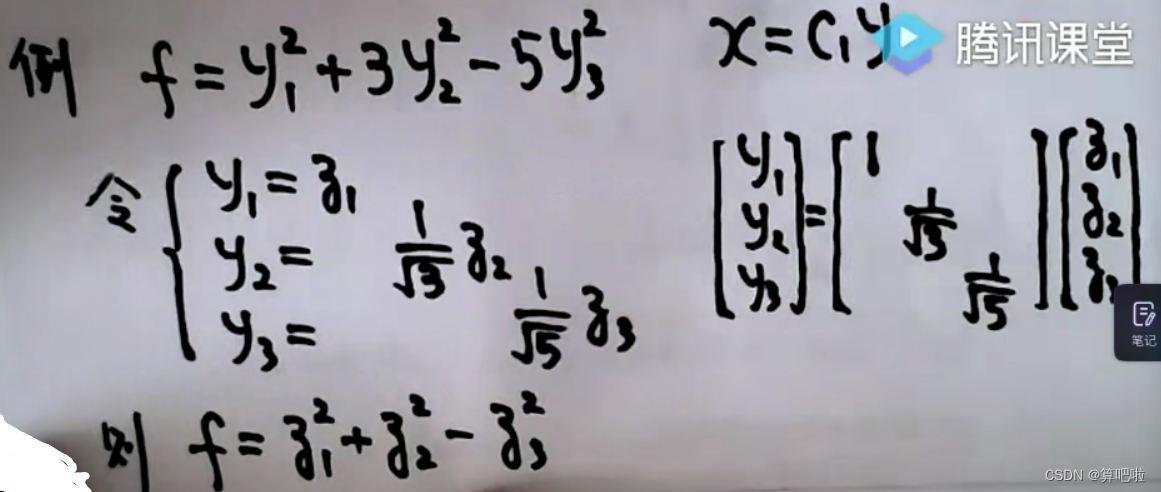 例 f = y₁² + 3y₂² − 5y₃²
x = C₁y
腾讯课堂
令 { y₁ = z₁
y₂ = 1/√3 z₂
y₃ = 1/√5 z₃
[y₁ y₂ y₃] = [1 1/√3 1/√5] [z₁ z₂ z₃]
笔记
则 f = z₁² + z₂² − z₃²
CSDN @算吧啦